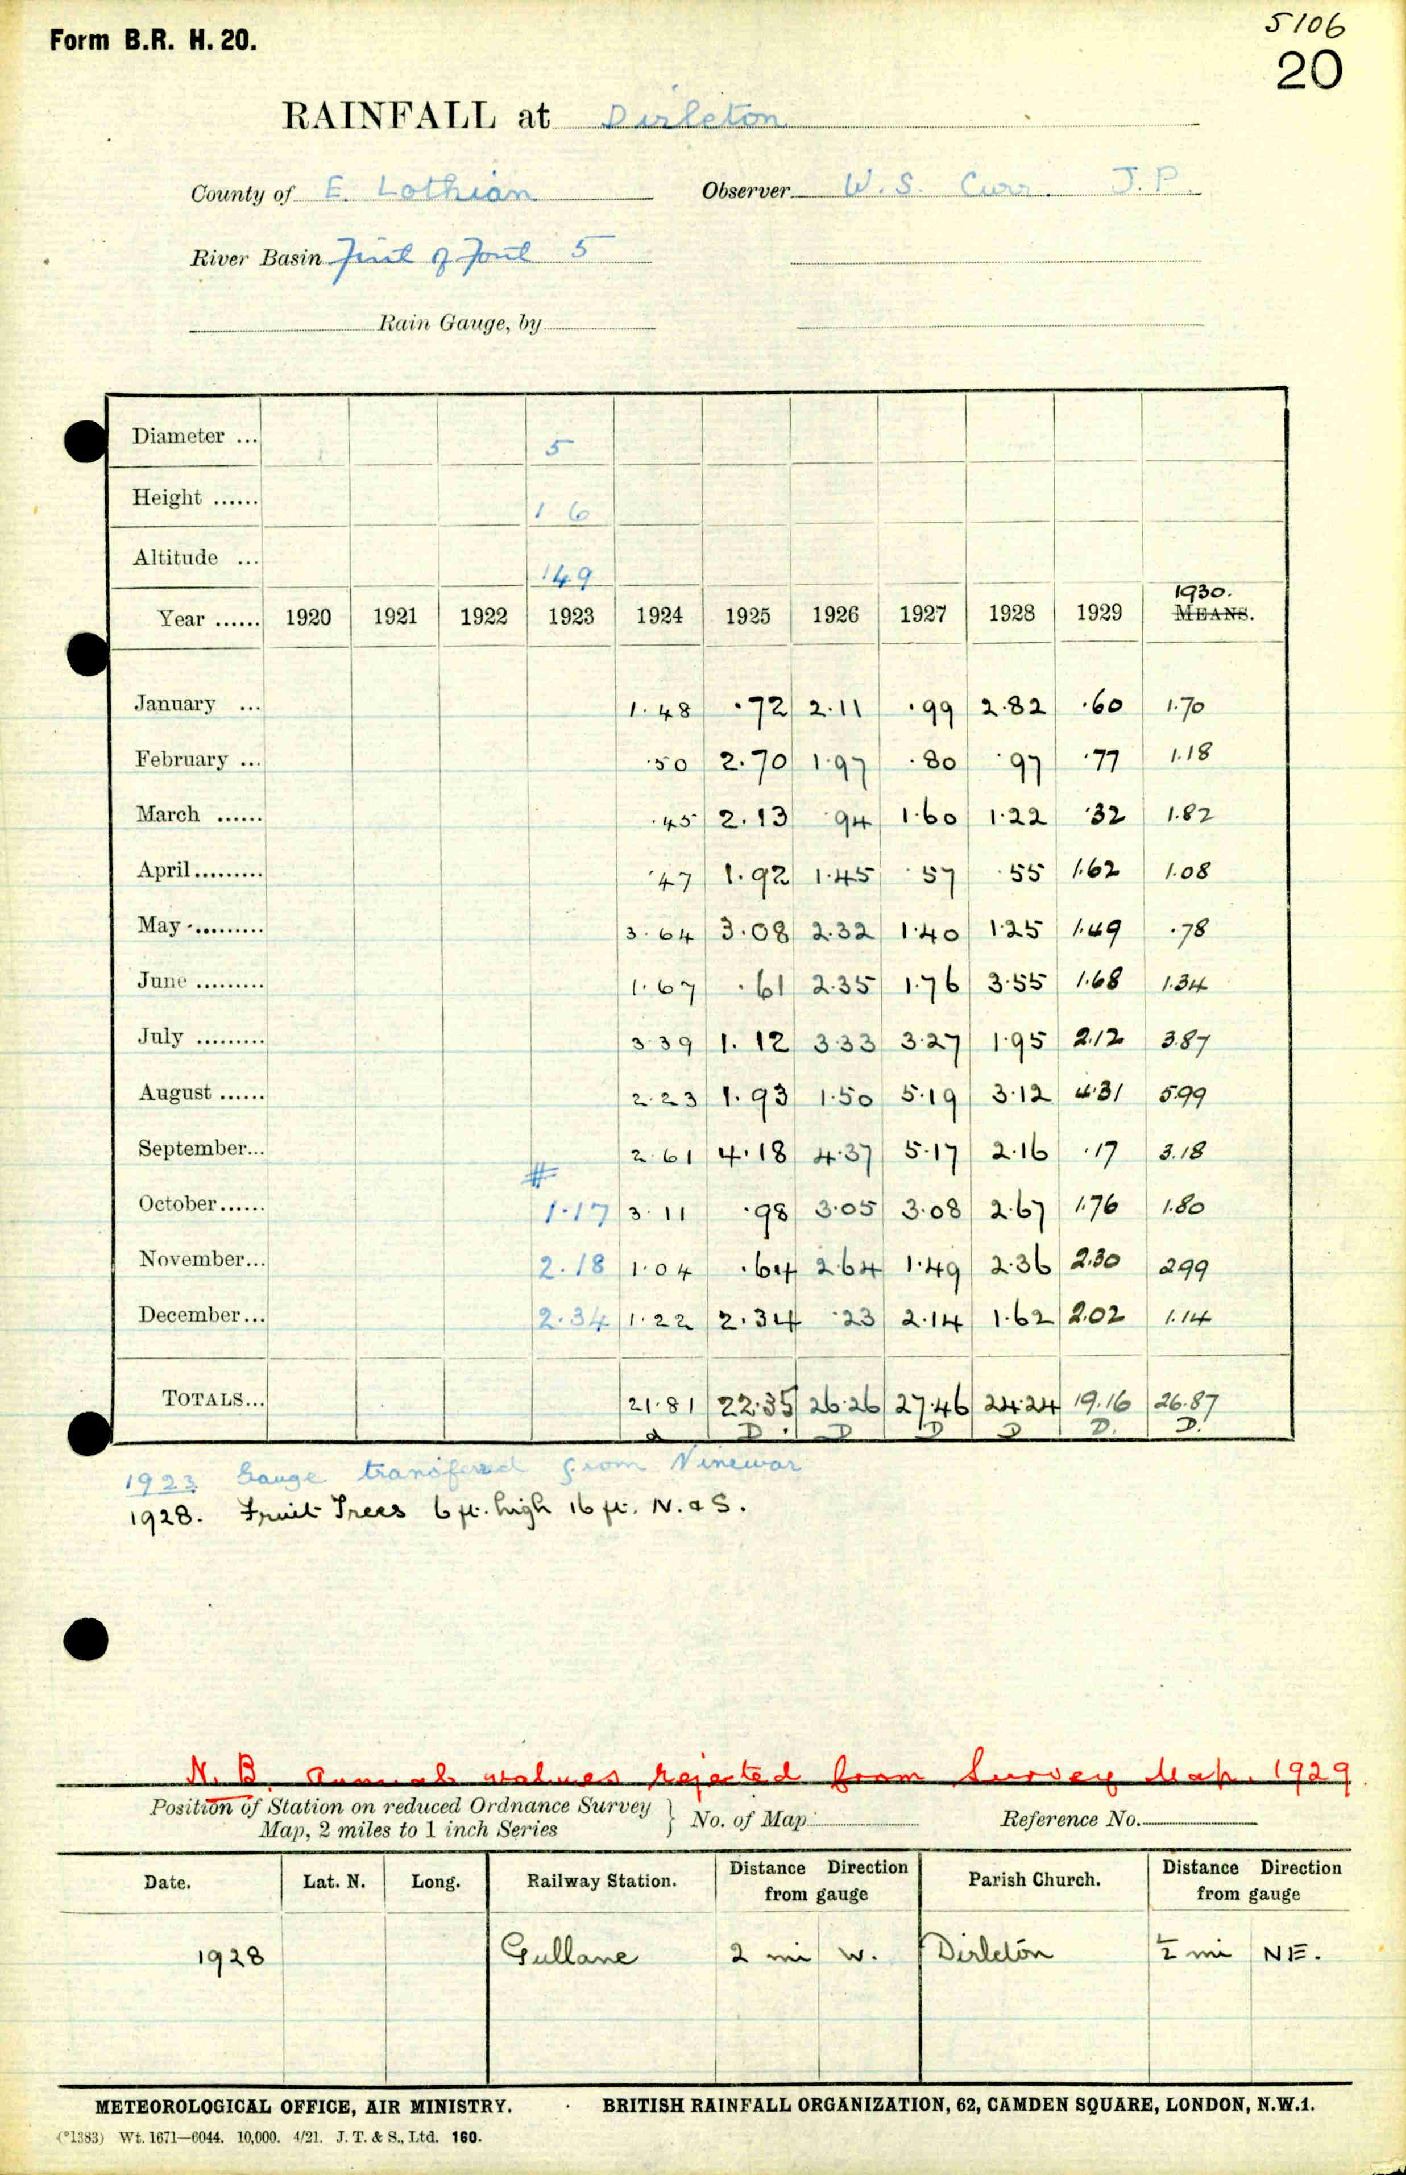 Form B.R. H. 20.
5106
20
RAINFALL at Dirleton
County of E. Lothian Observer W. S. Curr. J.P.
River Basin Firth of Forth 5
Rain Gauge, by
Diameter ... 5
Height ...... 1 6
Altitude ... 149
1930.
Year ...... 1920 1921 1922 1923 1924 1925 1926 1927 1928 1929 MEANS.
January ... 1.48 .72 2.11 .99 2.82 .60 1.70
February ... .50 2.70 1.97 .80 .97 .77 1.18
March ...... .45 2.13 .94 1.60 1.22 .32 1.82
April ......... .47 1.92 1.45 .57 .55 1.62 1.08
May ......... 3.64 3.08 2.32 1.40 1.25 1.49 .78
June ......... 1.67 .61 2.35 1.76 3.55 1.68 1.34
July ......... 3.39 1.12 3.33 3.27 1.95 2.12 3.87
August ...... 2.23 1.93 1.50 5.19 3.12 4.31 5.99
September... 2.61 4.18 4.37 5.17 2.16 .17 3.18
#
October ...... 1.17 3.11 .98 3.05 3.08 2.67 1.76 1.80
November... 2.18 1.04 .64 2.64 1.49 2.36 2.30 2.99
December... 2.34 1.22 2.34 .23 2.14 1.62 2.02 1.14
TOTALS... 21.81 22.35 26.26 27.46 24.24 19.16 26.87
d D. D D D D. D.
1923 Gauge transferred from Ninewar
1928. Fruit Trees 6 ft. high 16 ft. N. & S.
N.B. Annual values rejected from Survey Map. 1929
Position of Station on reduced Ordnance Survey
Map, 2 miles to 1 inch Series } No. of Map Reference No.
Date. Lat. N. Long. Railway Station. Distance Direction from gauge Parish Church. Distance Direction from gauge
1928 Gullane 2 mi W. Dirleton ½ mi NE.
METEOROLOGICAL OFFICE, AIR MINISTRY. BRITISH RAINFALL ORGANIZATION, 62, CAMDEN SQUARE, LONDON, N.W.1.
(*1383) Wt. 1671—6044. 10,000. 4/21. J. T. & S., Ltd. 160.